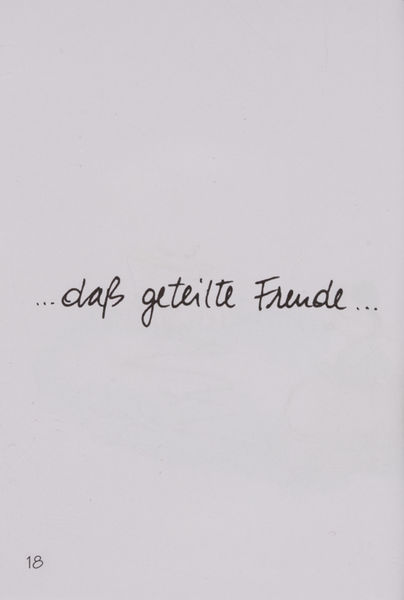 ...daß geteilte Freude...
18